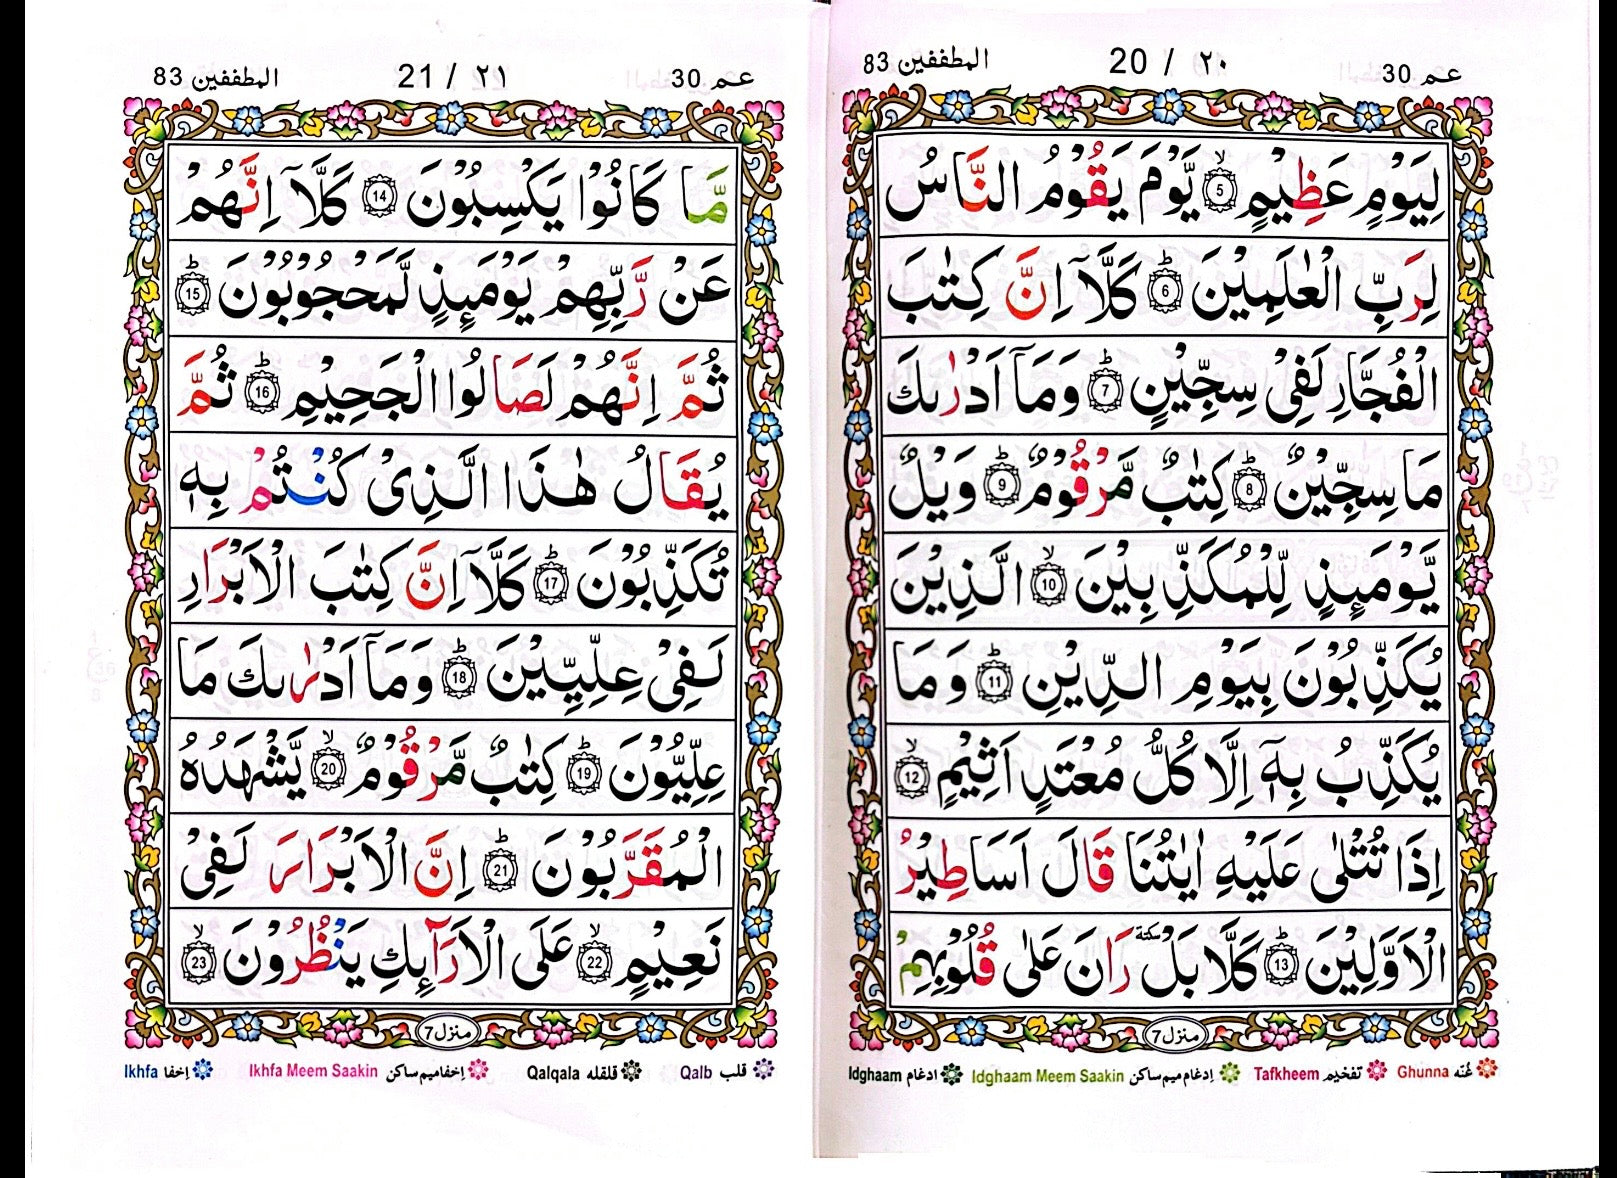 المطففين 83
20 / ٢٠
عـم 30
لِيَوْمٍ عَظِيْمٍ ۙ 5 يَّوْمَ يَقُوْمُ النَّاسُ
لِرَبِّ الْعٰلَمِيْنَ ؕ 6 كَلَّاۤ اِنَّ كِتٰبَ
الْفُجَّارِ لَفِيْ سِجِّيْنٍ ؕ 7 وَمَاۤ اَدْرٰىكَ
مَا سِجِّيْنٌ ؕ 8 كِتٰبٌ مَّرْقُوْمٌ ؕ 9 وَيْلٌ
يَّوْمَىِٕذٍ لِّلْمُكَذِّبِيْنَ ۙ 10 الَّذِيْنَ
يُكَذِّبُوْنَ بِيَوْمِ الدِّيْنِ ؕ 11 وَمَا
يُكَذِّبُ بِهٖۤ اِلَّا كُلُّ مُعْتَدٍ اَثِيْمٍ ۙ 12
اِذَا تُتْلٰى عَلَيْهِ اٰيٰتُنَا قَالَ اَسَاطِيْرُ
الْاَوَّلِيْنَ ؕ 13 كَلَّا بَلْ سكتة رَانَ عَلٰى قُلُوْبِهِمْ
منزل 7
غُنّه Ghunna تفخیم Tafkheem اِدغام میم ساکن Idghaam Meem Saakin ادغام Idghaam
المطففين 83
21 / ٢١
عـم 30
مَّا كَانُوْا يَكْسِبُوْنَ 14 كَلَّاۤ اِنَّهُمْ
عَنْ رَّبِّهِمْ يَوْمَىِٕذٍ لَّمَحْجُوْبُوْنَ ؕ 15
ثُمَّ اِنَّهُمْ لَصَالُوا الْجَحِيْمِ ؕ 16 ثُمَّ
يُقَالُ هٰذَا الَّذِىْ كُنْتُمْ بِهٖ
تُكَذِّبُوْنَ ؕ 17 كَلَّاۤ اِنَّ كِتٰبَ الْاَبْرَارِ
لَفِيْ عِلِّيِّيْنَ ؕ 18 وَمَاۤ اَدْرٰىكَ مَا
عِلِّيُّوْنَ ؕ 19 كِتٰبٌ مَّرْقُوْمٌ ۙ 20 يَّشْهَدُهُ
الْمُقَرَّبُوْنَ ؕ 21 اِنَّ الْاَبْرَارَ لَفِيْ
نَعِيْمٍ ۙ 22 عَلَى الْاَرَآىِٕكِ يَنْظُرُوْنَ ۙ 23
منزل 7
قلب Qalb قلقله Qalqala اِخفا میم ساکن Ikhfa Meem Saakin اِخفا Ikhfa